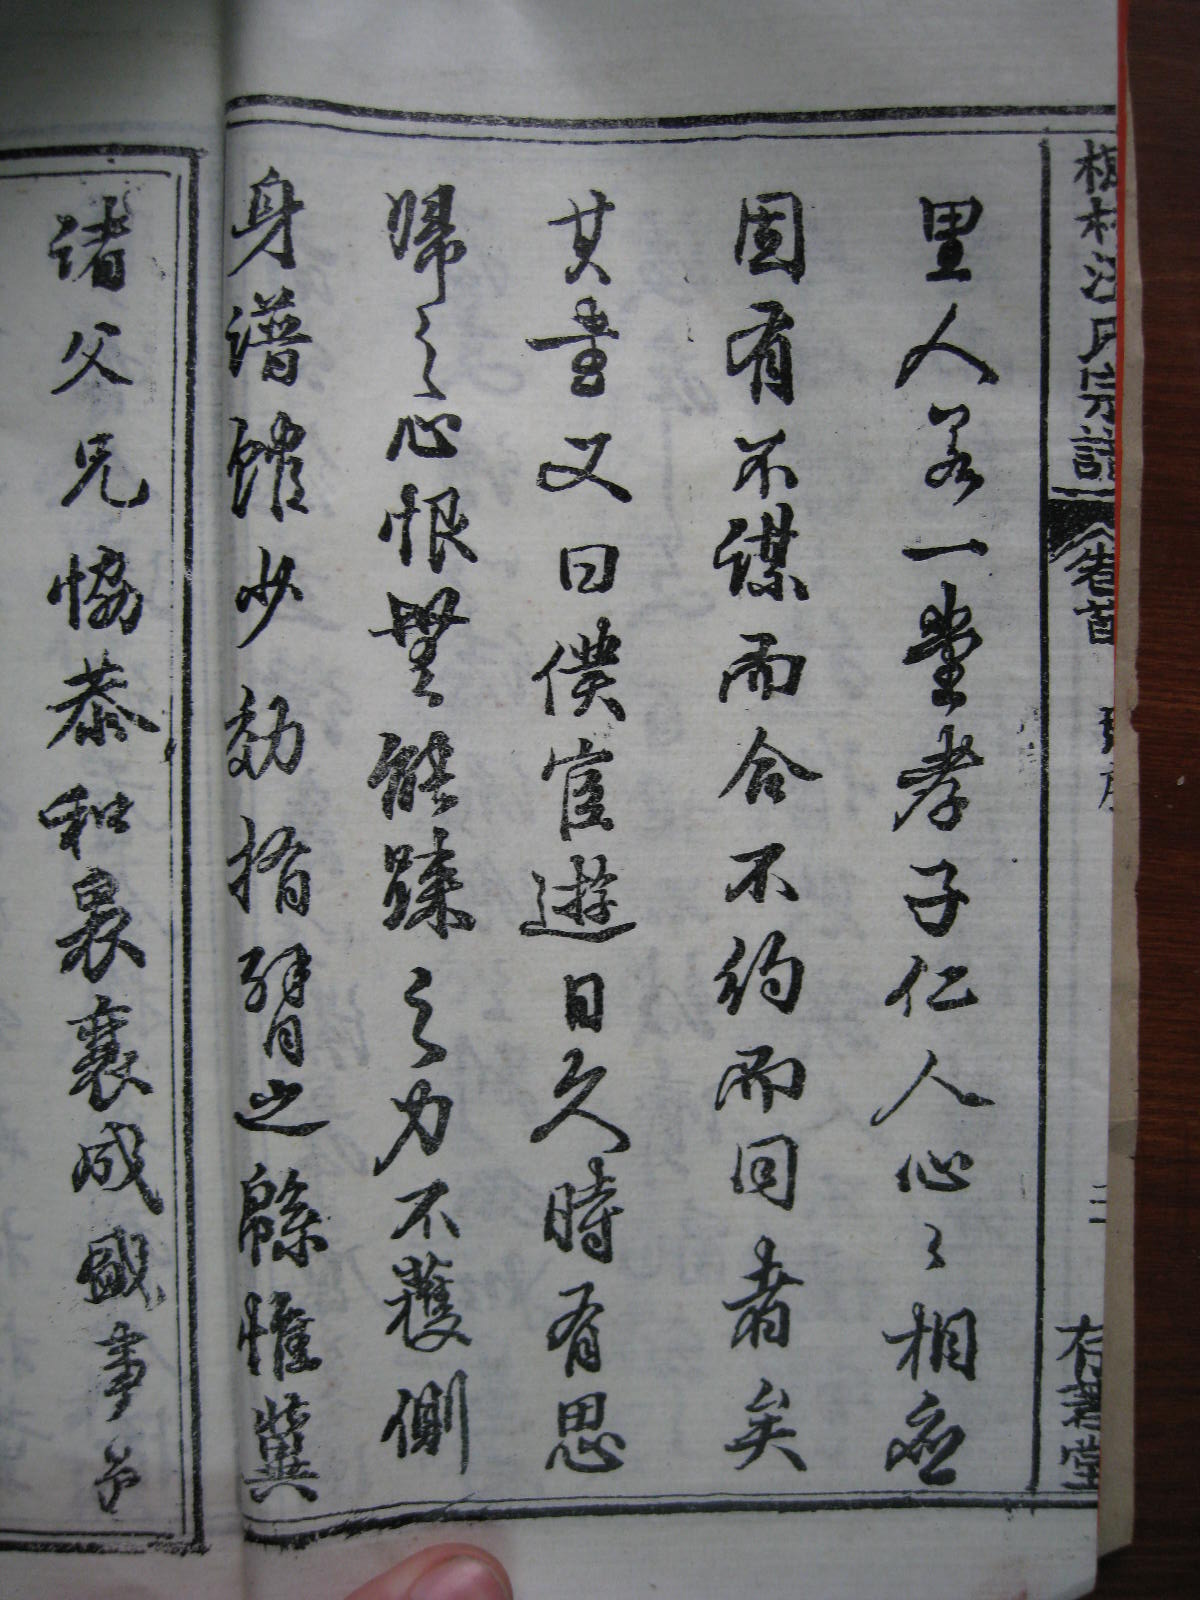 林汪氏宗譜 卷首 存著堂
里人若一堂孝子仁人心心相應
固有不謀而合不約而同者矣
其書又曰僕宦遊日久時有思
歸之心恨無能踈之力不獲側
身譜館少効指臂之緜惟冀
諸父兄恊恭和衷襄成盛事予